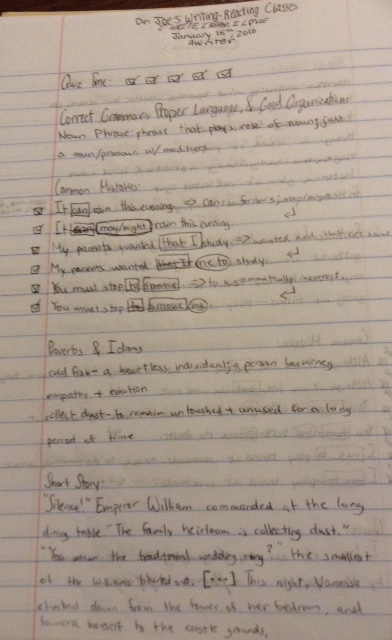 Dr. Joe's Writing-Reading Classes
January 15th, 2016
Quiz Time: ☑ ☑ ☑ ☑ ☑
Correct Grammar, Proper Language, & Good Organization
Noun Phrase: phrase that plays role of noun; just
a noun/pronoun w/ modifiers
Common Mistakes:
It can rain this evening. => can
It can may/might rain this evening.
My parents wanted that I study => wanted
My parents wanted that I me to study.
You must stop to smoke => to grammatically incorrect.
You must stop to smoke ing.
Proverbs & Idioms
cold fish- a heartless individual; a person lacking
empathy + emotion
collect dust- to remain untouched + unused for a long
period of time
Short Story:
"Silence!" Emperor William commanded at the long
dining table. "The family heirloom is collecting dust."
"You mean the traditional wedding ring?" the smallest
of the Williams blurted out. [...] This night, Vanessa
climbed down from the tower of her bedroom, and
lowers herself to the castle grounds,